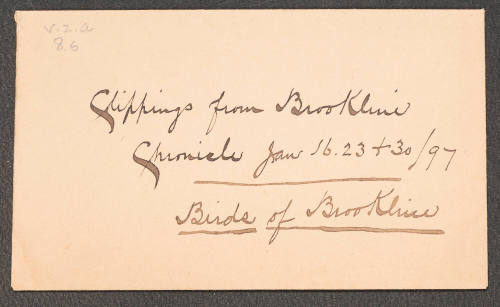 v.z.a
8.6
Clippings from Brookline
Chronicle Jan 16. 23 + 30/97
Birds of Brookline